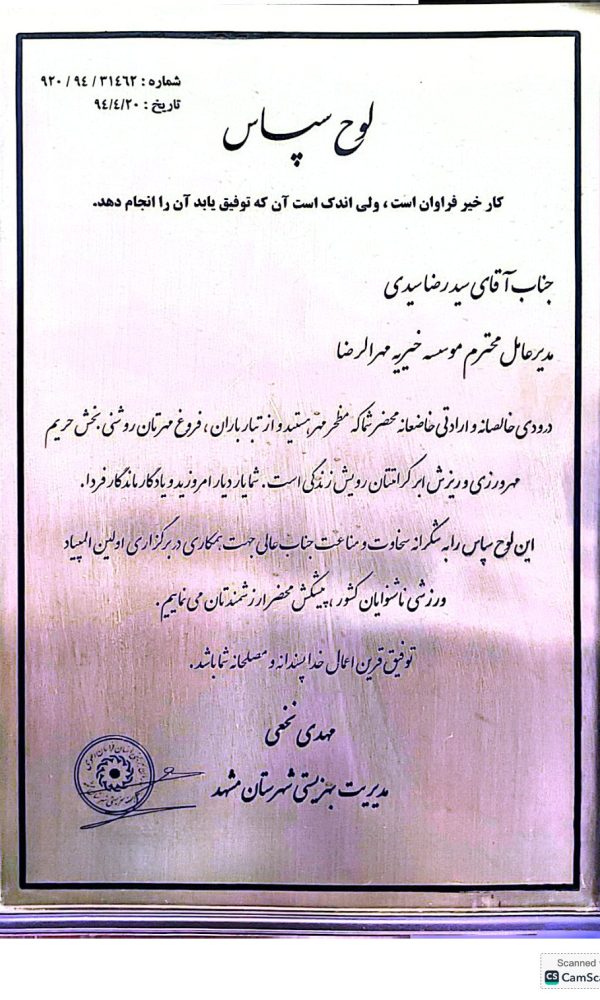 شماره : ٩٢٠ / ٩٤ / ٣١٤٦٢
تاریخ : ٩٤/٤/٢٠
لوح سپاس
کار خیر فراوان است ، ولی اندک است آن که توفیق یابد آن را انجام دهد.
جناب آقای سید رضا سیدی
مدیرعامل محترم موسسه خیریه مهرالرضا
درودی خالصانه و ارادتی خاضعانه محضر شما که مظهر مهر هستید و از تبار باران ، فروغ مهرتان روشنی بخش حریم
مهرورزی و ریزش ابر کرامتتان رویش زندگی است . شما یار دیار امروزید و یادگار ماندگار فردا.
این لوح سپاس را به شکرانه سخاوت و مناعت جناب عالی جهت همکاری در برگزاری اولین المپیاد
ورزشی ناشنوایان کشور ، پیشکش محضر ارزشمندتان می نماییم .
توفیق قرین اعمال خدا پسندانه و مصلحانه شما باشد .
مهدی نخعی
مدیریت بهزیستی شهرستان مشهد
Scanned
CS CamSc